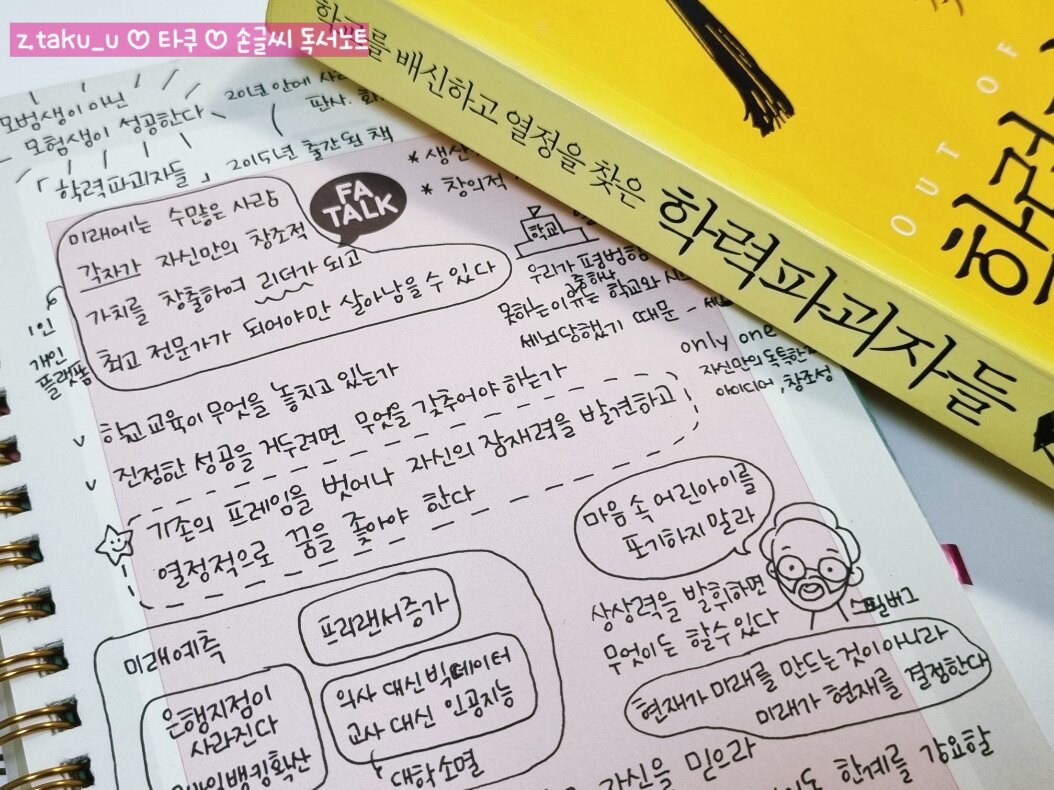 z.taku_u ♡ 타쿠 ♡ 손글씨 독서노트
모범생이 아닌
모험생이 성공한다
20년 안에
판사.
「학력파괴자들」 2015년 출간된 책
* 생산
* 창의적
FA
TALK
미래에는 수많은 사람
각자가 자신만의 창조적
가치를 창출하여 리더가 되고
최고 전문가가 되어야만 살아남을 수 있다
1인
개인
플랫폼
학교
우리가 평범함
못하는 이유는 학교와
세뇌당했기 때문 -
only one
자신만의 독특한
아이디어, 창조성
∨ 학교 교육이 무엇을 놓치고 있는가
∨ 진정한 성공을 거두려면 무엇을 갖추어야 하는가
기존의 프레임을 벗어나 자신의 잠재력을 발견하고
열정적으로 꿈을 좇아야 한다
마음 속 어린아이를
포기하지 말라
스필버그
상상력을 발휘하면
무엇이든 할 수 있다
현재가 미래를 만드는 것이 아니라
미래가 현재를 결정한다
미래예측
프리랜서증가
은행지점이
사라진다
뱅킹확산
의사 대신 빅데이터
교사 대신 인공지능
대학소멸
자신을 믿으라
한계를 강요할
학교를 배신하고 열정을 찾은 학력파괴자들
OUT OF